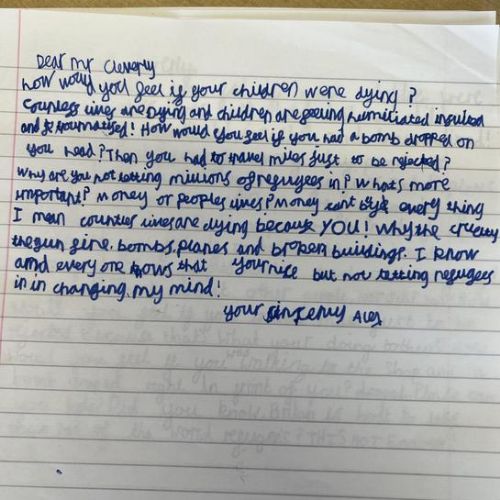 Dear Mr Cleverly
how would you feel if your children were dying?
Countless lives are dying and children are feeling humiliated insulted
and traumatised! How would you feel if you had a bomb dropped on
you head? Then you had to travel miles just to be rejected?
Why are you not letting millions of refugees in? What's more
important? money or peoples lives? money isnt every thing
I mean countles lives are dying because YOU! Why the cruelty
the gun fire. bombs. planes and broken buildings. I know
and every one knows that your nise but not letting refugees
in in changing my mind!
your sincerly Alex